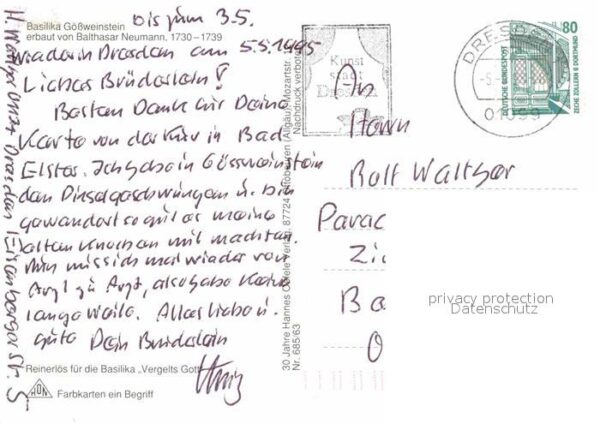 Bis zum 3.5.
Basilika Gößweinstein
erbaut von Balthasar Neumann, 1730–1739
wieder in Dresden am 5.5.1995
Liebes Brüderlein!
Besten Dank für Deine
Karte von der Kur in Bad
Elster. Ich habe in Gössweinstein
den Pinsel geschwungen u. bin
gewandert so gut es meine
alten Knochen mit machten.
Nun muss ich mal wieder von
Arzt zu Arzt, also habe keine
lange Weile. Alles liebe u.
gute Dein Bruderlein
Heinz
Reinerlös für die Basilika „Vergelts Gott
HON
Farbkarten ein Begriff
H. Walther Dresden Eisenberger Str. 5
30 Jahre Hannes Oefele Verlag, 87724 Ottobeuren (Allgäu) Mozartstr.
Nr. 685/63
Nachdruck verboten
Kunst
stadt
Dresden
DRESD
-5.
01099
80
DEUTSCHE BUNDESPOST
ZECHE ZOLLERN II DORTMUND
An
Herrn
Rolf Walther
Parac
Zi
Ba
O
privacy protection
Datenschutz